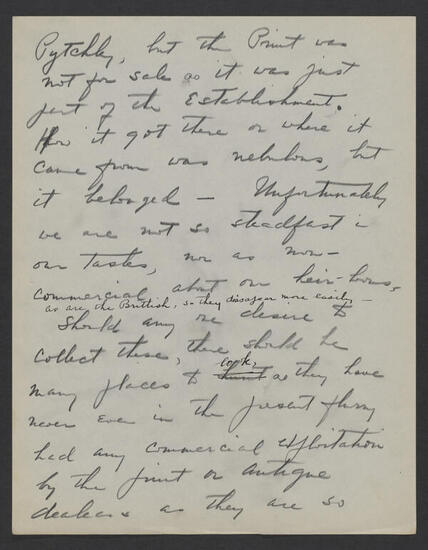 Pytchley, but the Print was
not for sale as it was just
part of the Establishment.
How it got there or where it
came from was nebulous, but
it belonged — Unfortunately
we are not so steadfast in
our tastes, nor as non-
commercial about our heir-looms,
as are the Brittish, so they disappear more easily, —
Should any one desire to
collect these, there should be
look,
many places to hunt as they have
never even in the present flurry
had any commercial exploitation
by the print or antique
dealers as they are so